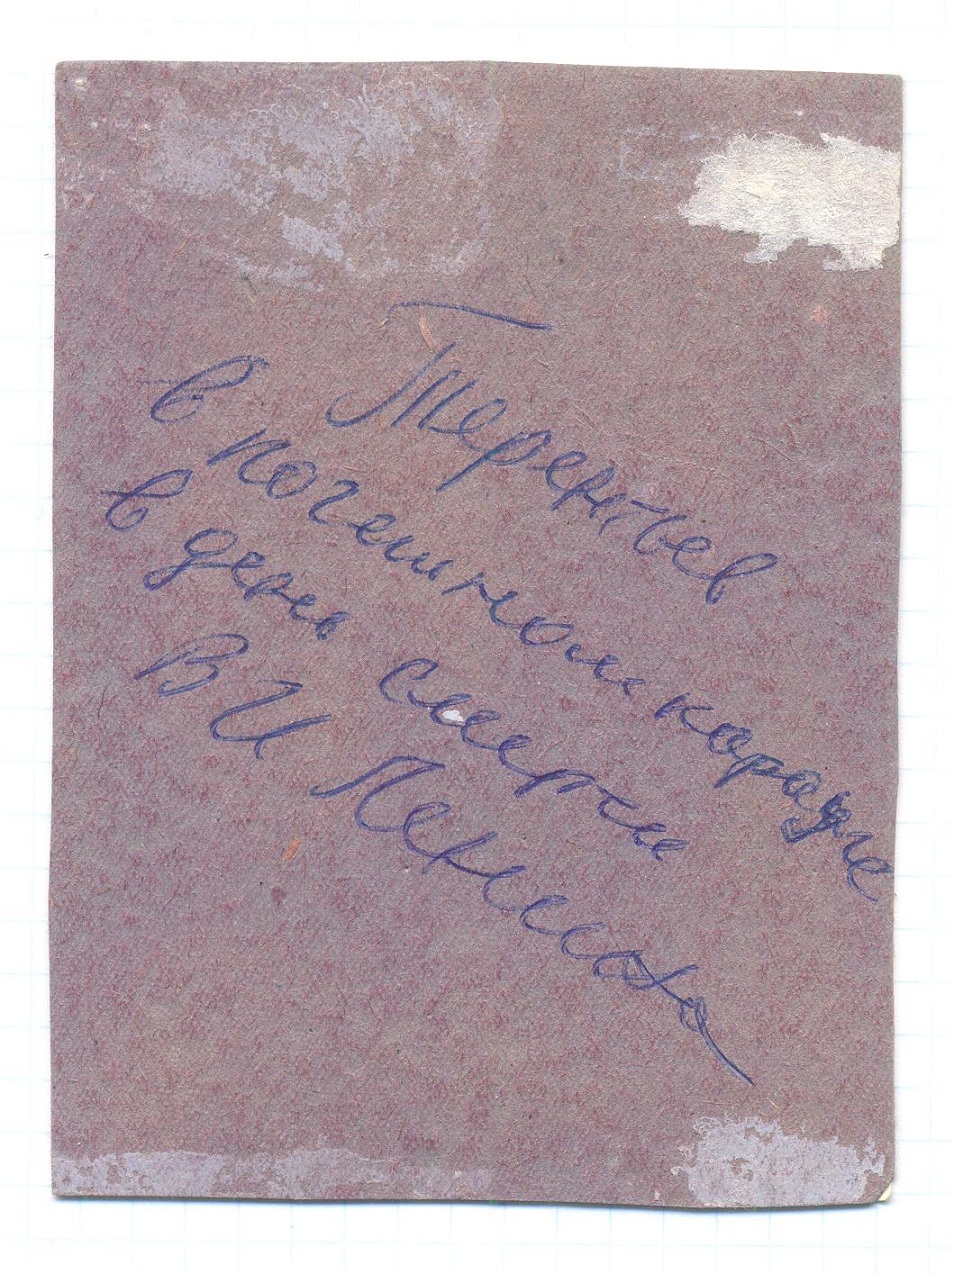 Терентьев
в почетном карауле
в день смерти
В И Ленина